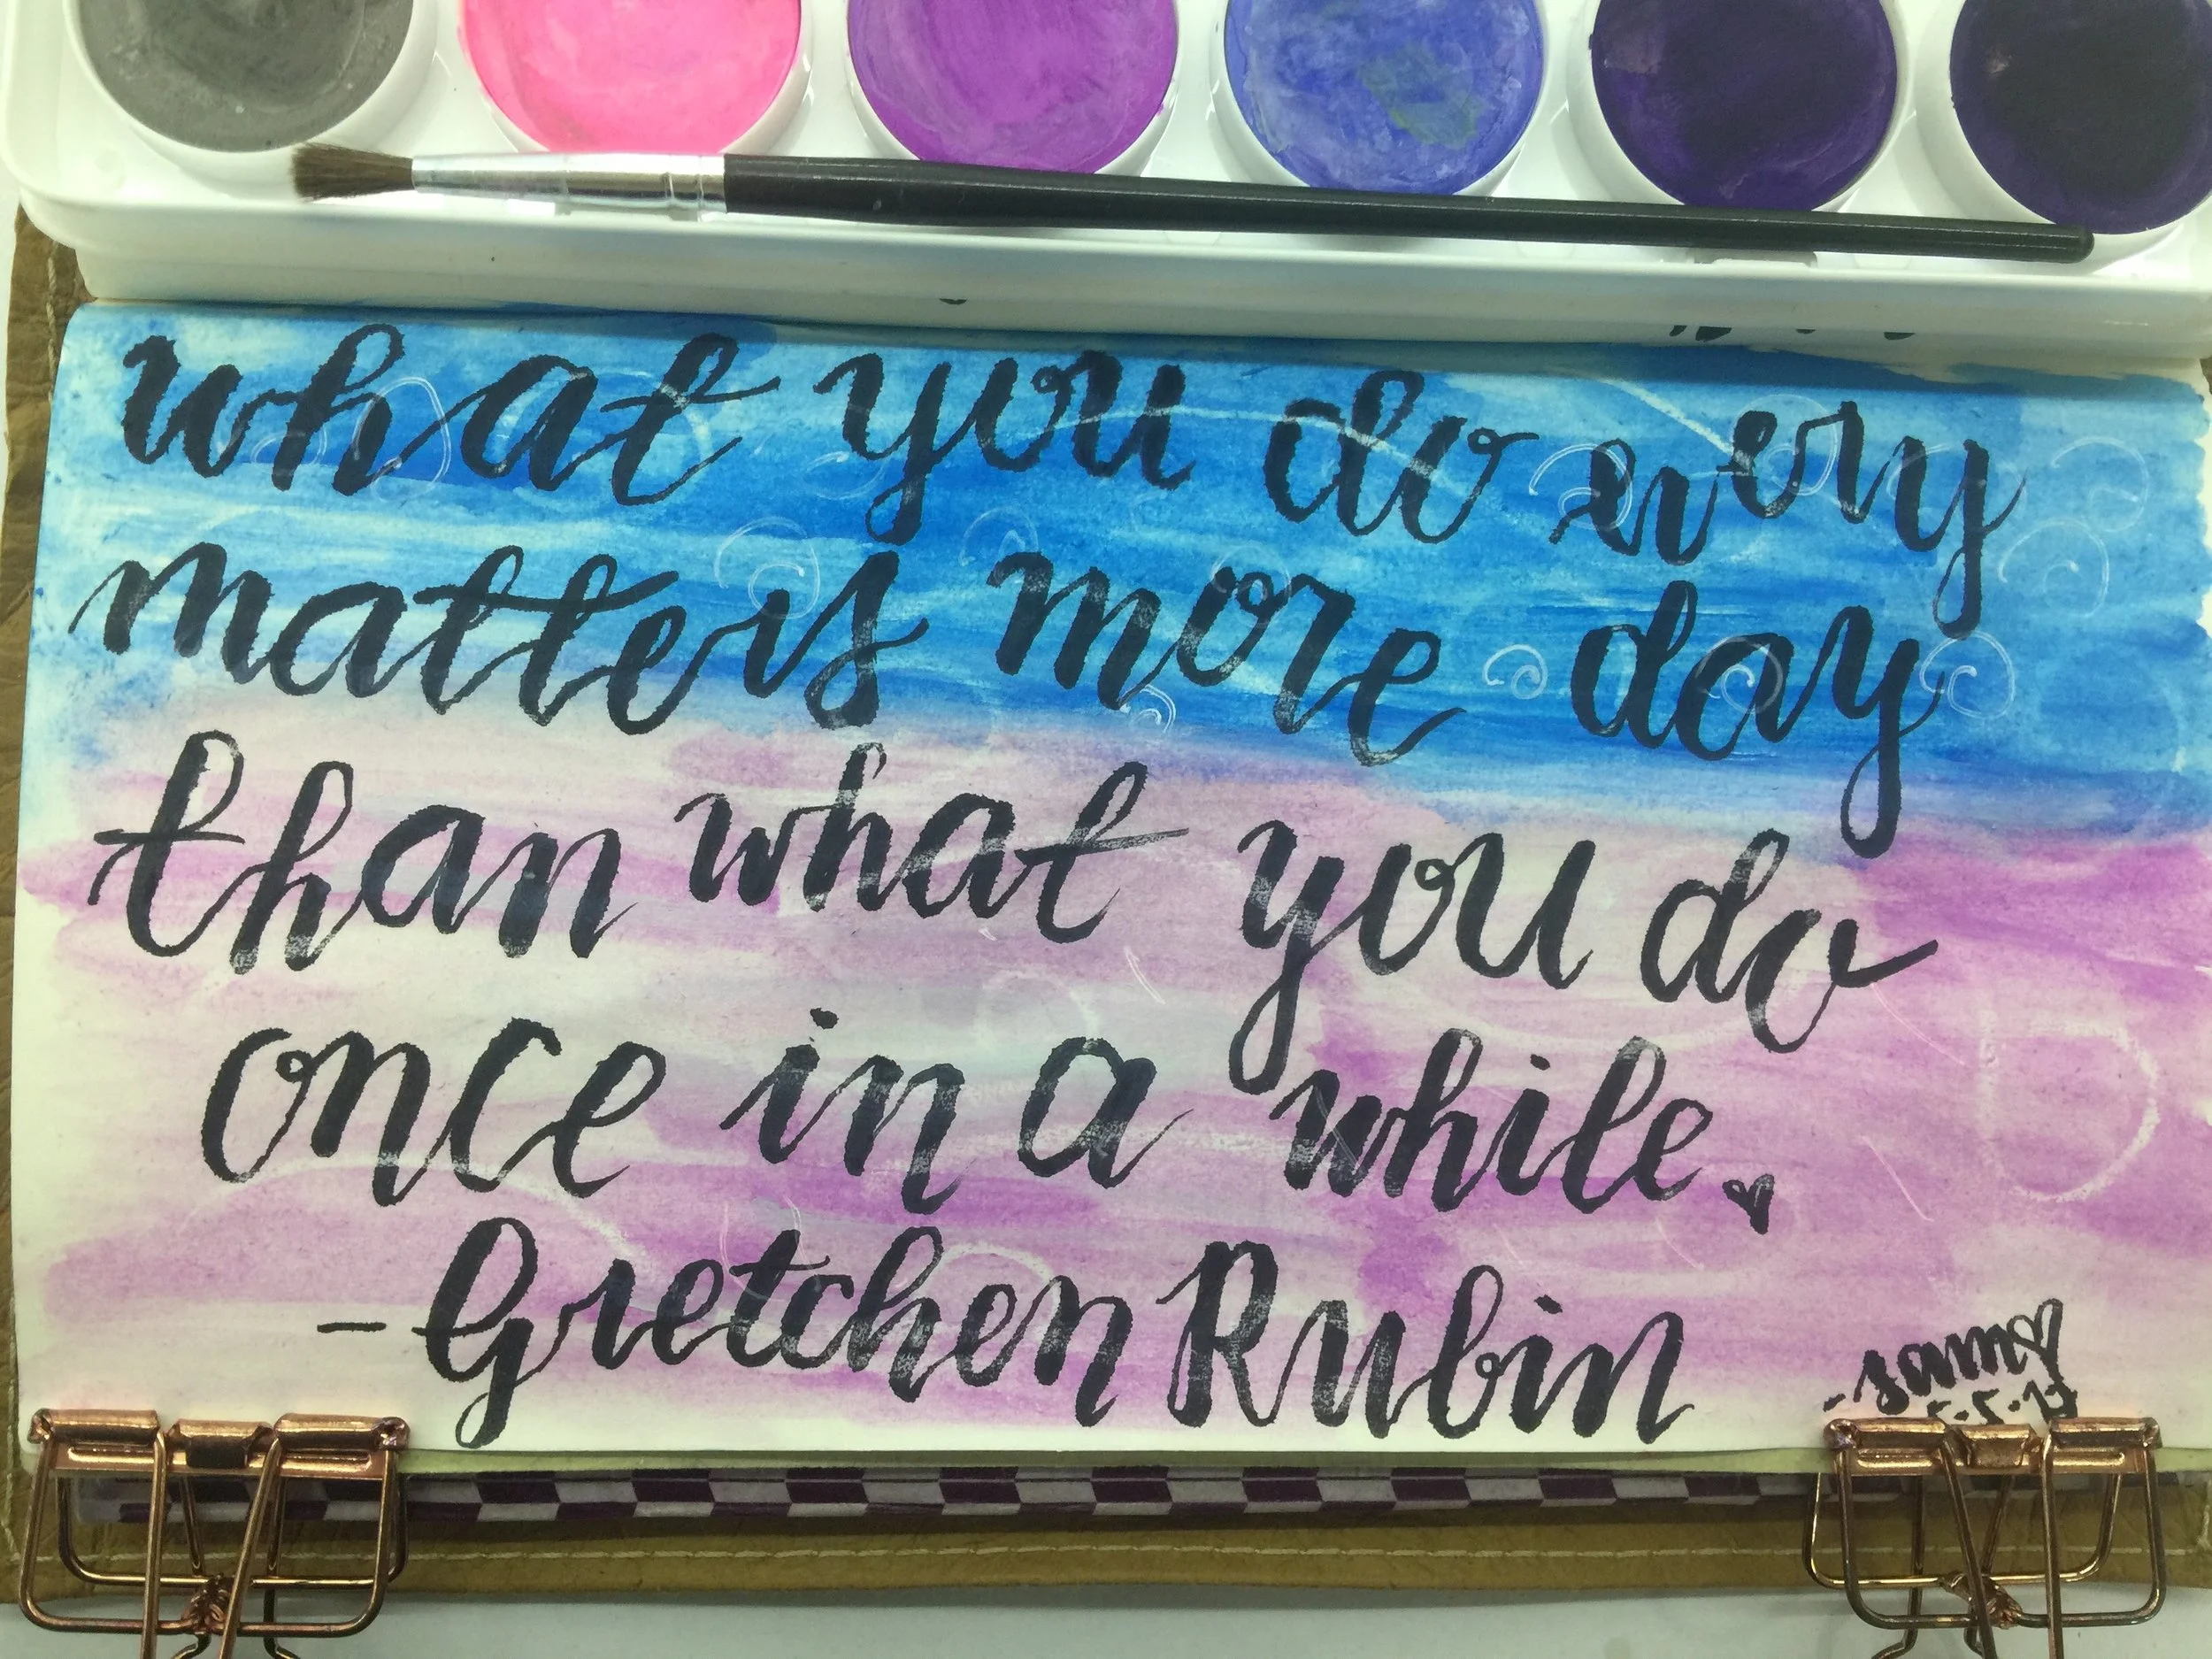 what you do every
matters more day
than what you do
once in a while.
- Gretchen Rubin
- sam